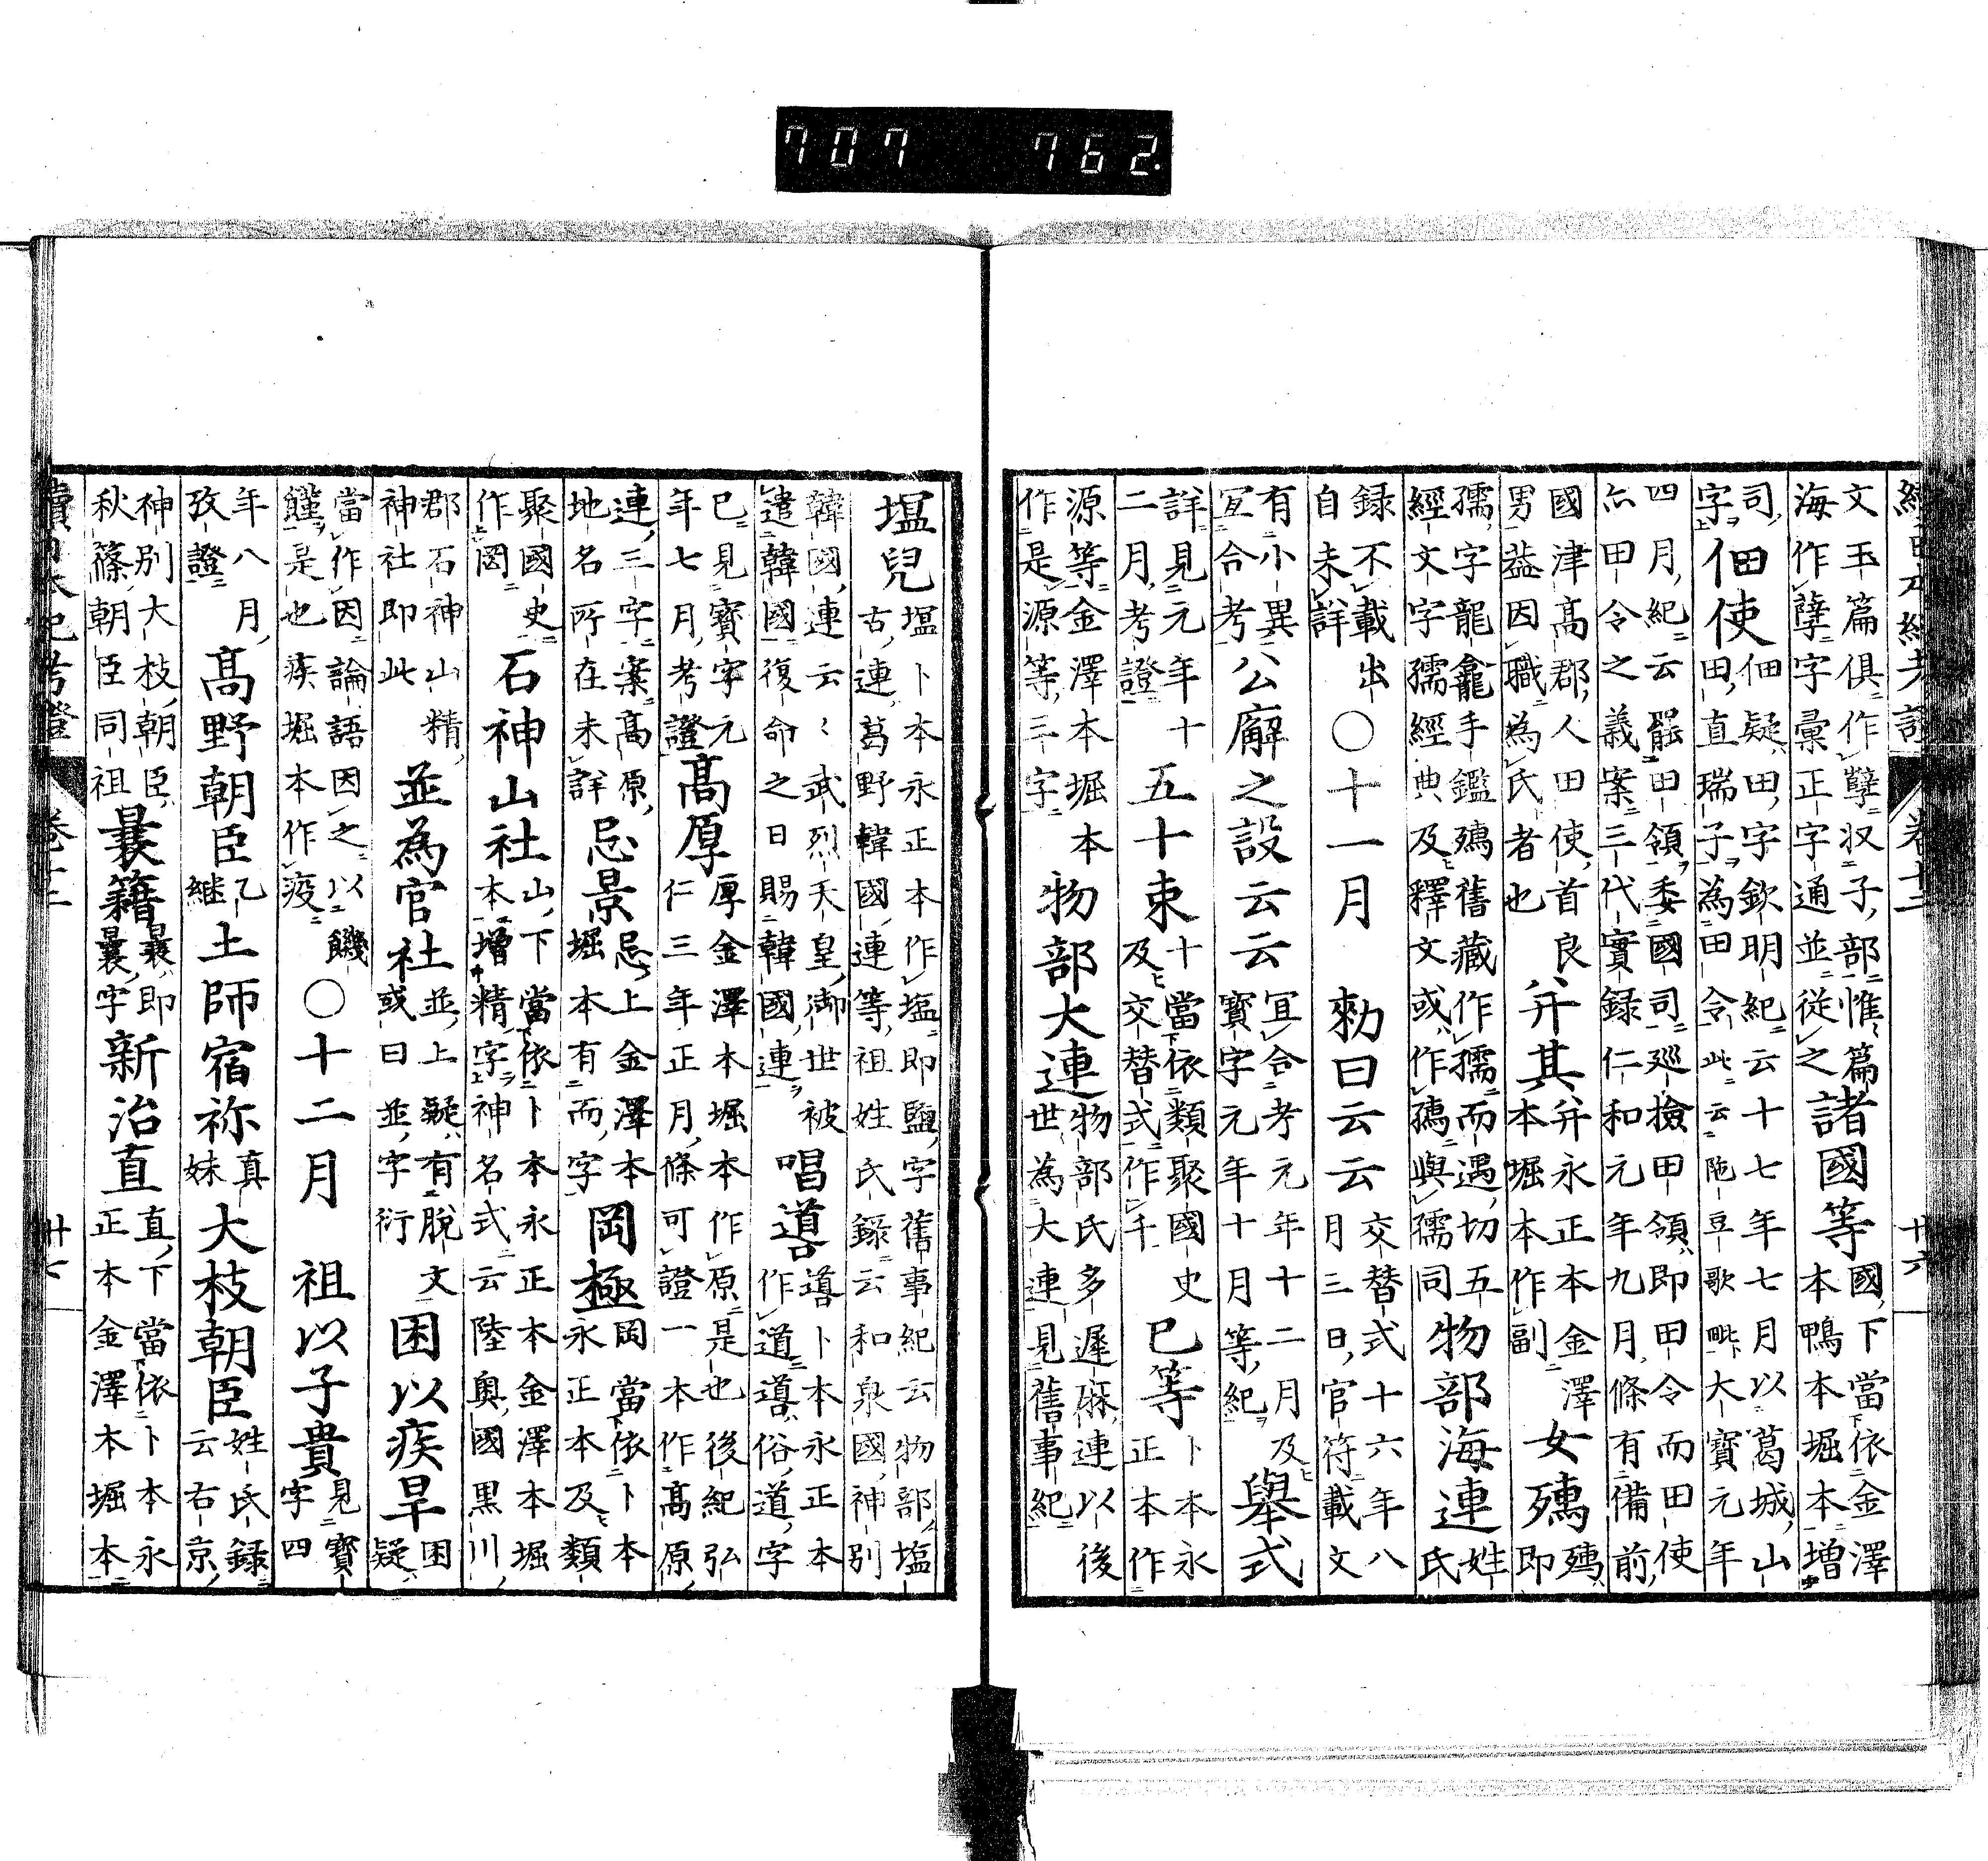 707 762
續日本紀考證 卷十二 廿六
文玉篇俱作孽汊子部惟篇
海作孽字彙正字通並從之
諸國等
國下當依金澤
本鴨本堀本增
司
字
佃使
佃疑田字欽明紀云十七年七月以葛城山
田直瑞子為田令此云陁豆歌毗大寶元年
四月紀云罷田領委國司巡檢田領即田令而田使
亦田令之義案三代實録仁和元年九月條有備前
國津高郡人田使首良
男益因職為氏者也
幷其
幷永正本金澤
本堀本作副
女㼈
㼈
即
孺字龍龕手鑑㼈舊藏作孺而遇切五
經文字孺經典及釋文或作㼈與孺同
物部海連
姓
氏
録不載出
自未詳
○十一月
勅曰云云
交替式十六年八
月三日官符載文
有小異
宜合考
公廨之設云云
宜合考元年十二月及
寶字元年十月等紀
舉式
詳見元年十
二月考證
五十束
十當依類聚國史
及交替式作千
已等
卜本永
正本作
源等金澤本堀本
作是源等三字
物部大連
物部氏多遲麻連以後
世為大連見舊事紀
塩兒
塩卜本永正本作塩即鹽字舊事紀云物部塩
古連葛野韓國連等祖姓氏録云和泉國神別
韓國連云々武烈天皇御世被
遣韓國復命之日賜韓國連
唱噵
噵卜本永正本
作道噵俗道字
已見寶字元
年七月考證
高厚
厚金澤本堀本作原是也後紀弘
仁三年正月條可證一本作高原
連三字案高原
地名所在未詳
忌景
忌上金澤本
堀本有而字
岡極
岡當依卜本
永正本及類
聚國史
作罔
石神山社
山下當依卜本永正本金澤本堀
本增精字神名式云陸奧國黒川
郡石神山精
神社即此
並為官社
並上疑有脫文
或曰並字衍
困以疾旱
困
疑
當作因論語因之以饑
饉是也疾堀本作疫
○十二月
祖以子貴
見寶
字四
年八月
攷證
高野朝臣
乙
継
土師宿祢
真
妹
大枝朝臣
姓氏録
云右京
神別大枝朝臣即
秋篠朝臣同祖
曩籍
曩即
曩字
新治直
直下當依卜本永
正本金澤本堀本
續日本紀考證 卷十二 廿七